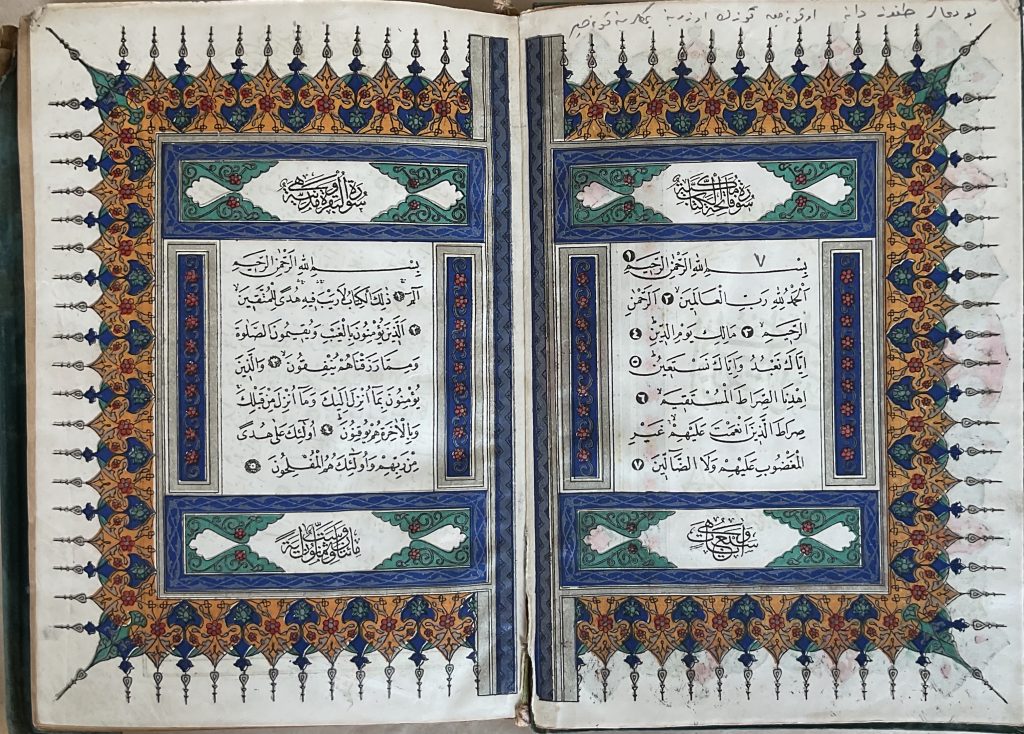 سُورَةُ فَاتِحَةِ الْكِتَابِ مَكِّيَّةٌ
٧
بِسْمِ اللهِ الرَّحْمٰنِ الرَّحِيمِ ١
اَلْحَمْدُ لِلّٰهِ رَبِّ الْعَالَمِينَ ٢ اَلرَّحْمٰنِ
الرَّحِيمِ ٣ مَالِكِ يَوْمِ الدِّينِ ٤
اِيَّاكَ نَعْبُدُ وَاِيَّاكَ نَسْتَعِينُ ٥
اِهْدِنَا الصِّرَاطَ الْمُسْتَقِيمَ ٦
صِرَاطَ الَّذِينَ اَنْعَمْتَ عَلَيْهِمْ غَيْرِ
الْمَغْضُوبِ عَلَيْهِمْ وَلَا الضَّالِّينَ ٧
وَهِيَ سَبْعُ اٰيَاتٍ
سُورَةُ الْبَقَرَةِ مَدَنِيَّةٌ وَهِيَ
بِسْمِ اللهِ الرَّحْمٰنِ الرَّحِيمِ
الٓمٓ ١ ذٰلِكَ الْكِتَابُ لَا رَيْبَ فِيهِ هُدًى لِلْمُتَّقِينَ
٢ اَلَّذِينَ يُؤْمِنُونَ بِالْغَيْبِ وَيُقِيمُونَ الصَّلٰوةَ
وَمِمَّا رَزَقْنَاهُمْ يُنْفِقُونَ ٣ وَالَّذِينَ
يُؤْمِنُونَ بِمَا اُنْزِلَ اِلَيْكَ وَمَا اُنْزِلَ مِنْ قَبْلِكَ
وَبِالْاٰخِرَةِ هُمْ يُوقِنُونَ ٤ اُولٰئِكَ عَلٰى هُدًى
مِنْ رَبِّهِمْ وَاُولٰئِكَ هُمُ الْمُفْلِحُونَ ٥
مِائَتَانِ وَثَمَانُونَ اٰيَةً